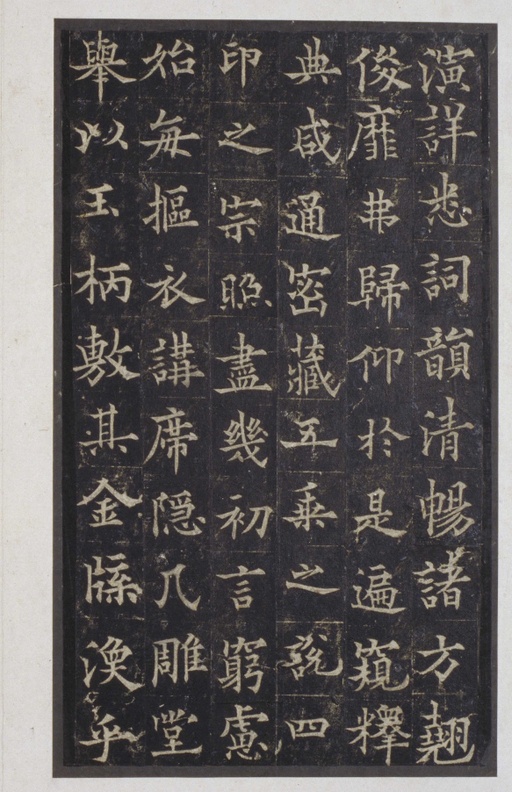 演詳悉詞韻清暢諸方翹
俊靡弗歸仰於是遍窺釋
典咸通密藏五乘之說四
印之宗照盡幾初言窮慮
始每摳衣講席隱几雕堂
舉以玉柄敷其金牒渙乎